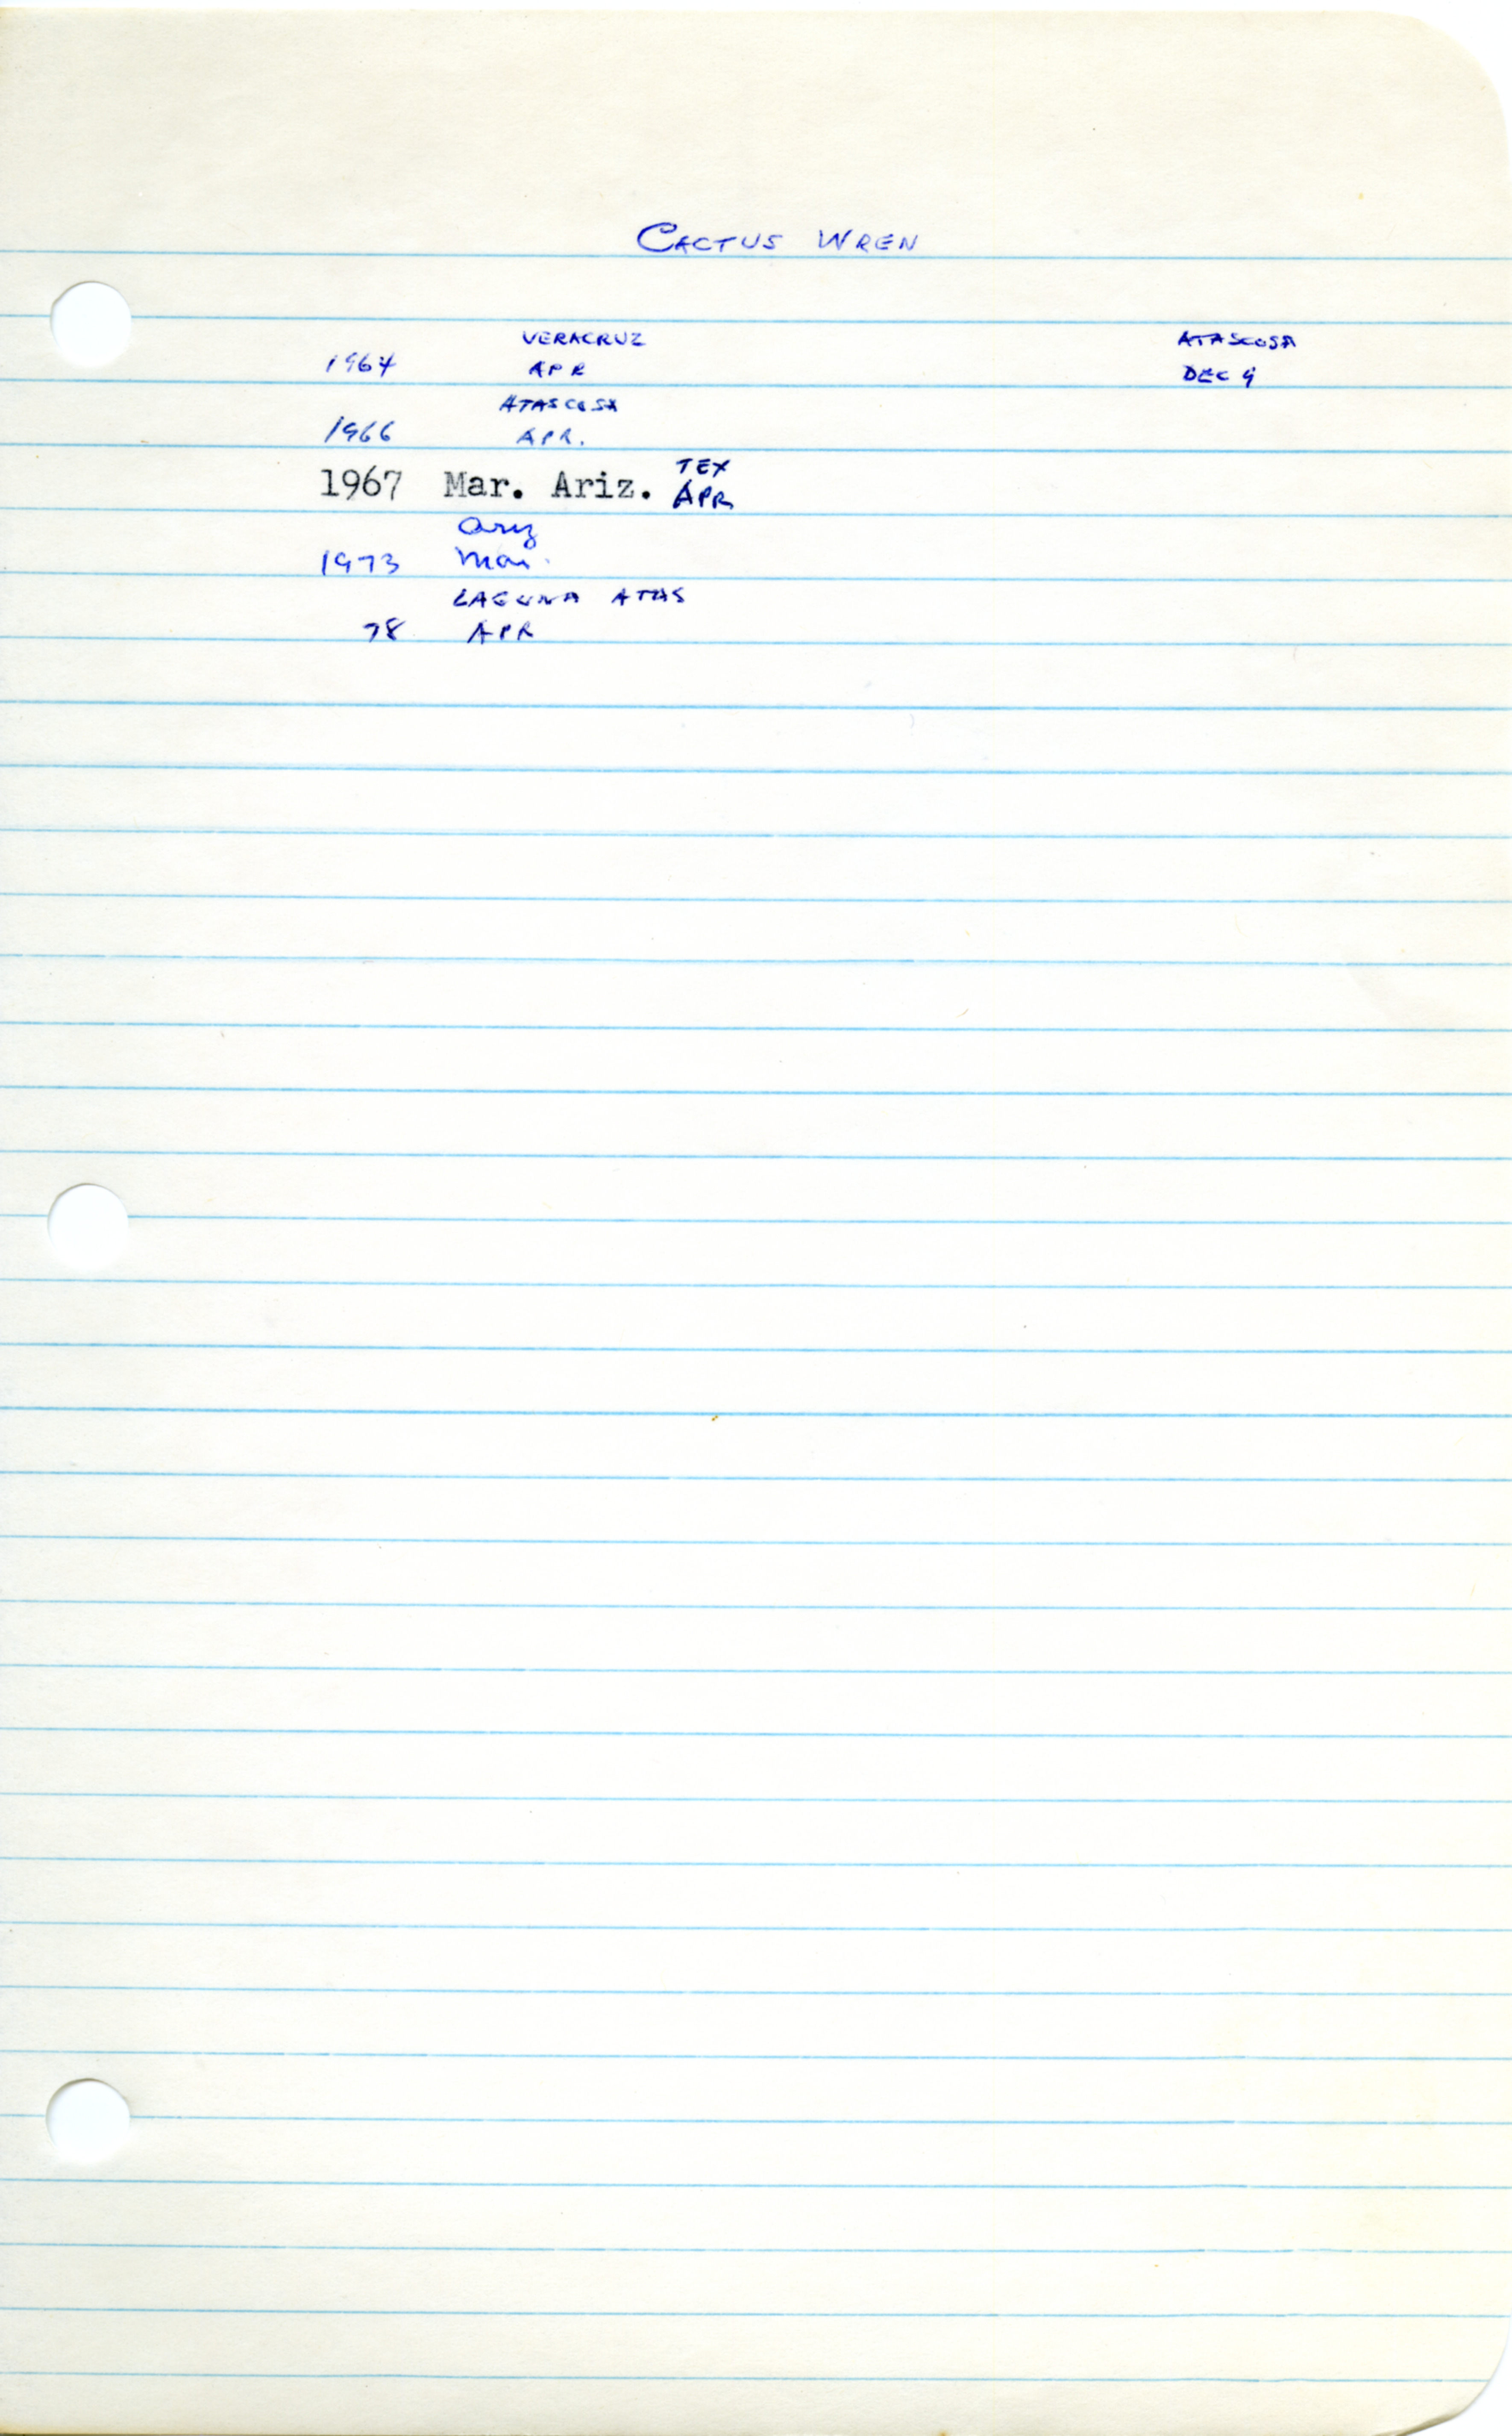 CACTUS WREN
VERACRUZ ATASCOSA
1964 APR DEC 9
ATASCOSA
1966 APR.
TEX
1967 Mar. Ariz. APR
Ariz
1973 Mar.
LAGUNA ATAS
78 APR